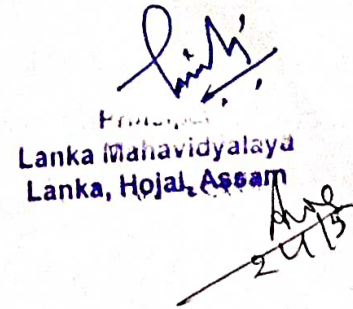 Principal
Lanka Mahavidyalaya
Lanka, Hojai, Assam
24/5